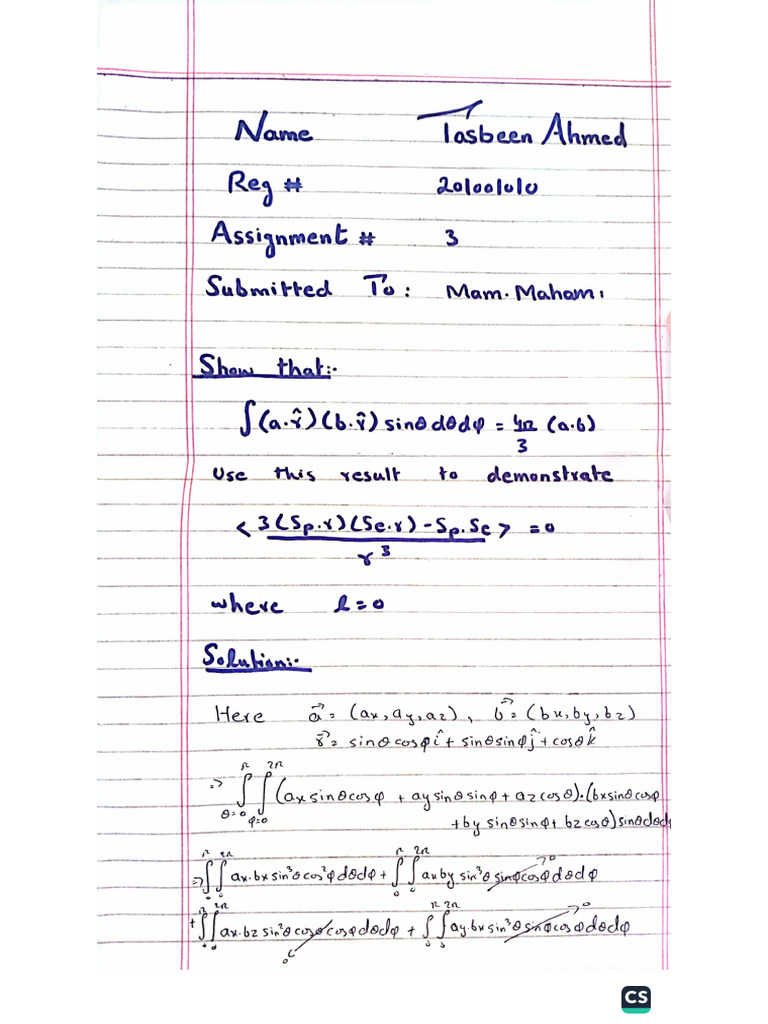 Name Tasbeen Ahmed
Reg # 20100101010
Assignment # 3
Submitted To: Mam. Maham.
Show that:-
∫(a.r̂)(b.r̂) sinθdθdφ = 4π/3 (a.b)
Use this result to demonstrate
< 3(Sp.r)(Se.r) - Sp.Se / r³ > = 0
where l=0
Solution:-
Here a⃗ = (ax, ay, az), b⃗ = (bx, by, bz)
r⃗ = sinθcosφî + sinθsinφĵ + cosθk̂
=> ∫_{θ=0}^{π} ∫_{φ=0}^{2π} (ax sinθcosφ + ay sinθsinφ + az cosθ).(bx sinθcosφ
+ by sinθsinφ + bz cosθ) sinθdθdφ
=> ∫_0^π ∫_0^{2π} ax.bx sin³θcos²φdθdφ + ∫_0^π ∫_0^{2π} ax by sin³θ sinφcosφdθdφ → 0
+ ∫_0^π ∫_0^{2π} ax.bz sin²θ cosθcosφdθdφ → 0 + ∫_0^π ∫_0^{2π} ay.bx sin³θ sinφcosφdθdφ → 0
CS